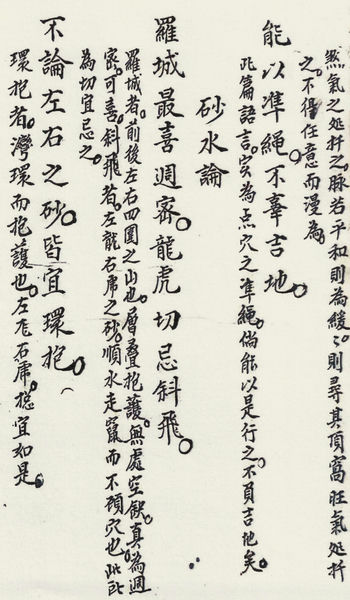 煞氣之処扦之。脉若平和則為緩。緩則尋其頂窩旺氣処扦
之。不得任意而漫為。
能以準繩。不辜吉地。
此篇語言。实為点穴之準繩。倘能以是行之。不負吉地矣。
砂水論
羅城最喜週密。龍虎切忌斜飛。
羅城者。前後左右四圍之山也。層叠抱護。無處空缺。真為週
密。可喜。斜飛者。左龍右虎之砂。順水走竄。而不顾穴也。此最
為切宜忌之。
不論左右之砂。皆宜環抱。
環抱者。灣環而抱護也。左龙右虎。總宜如是。